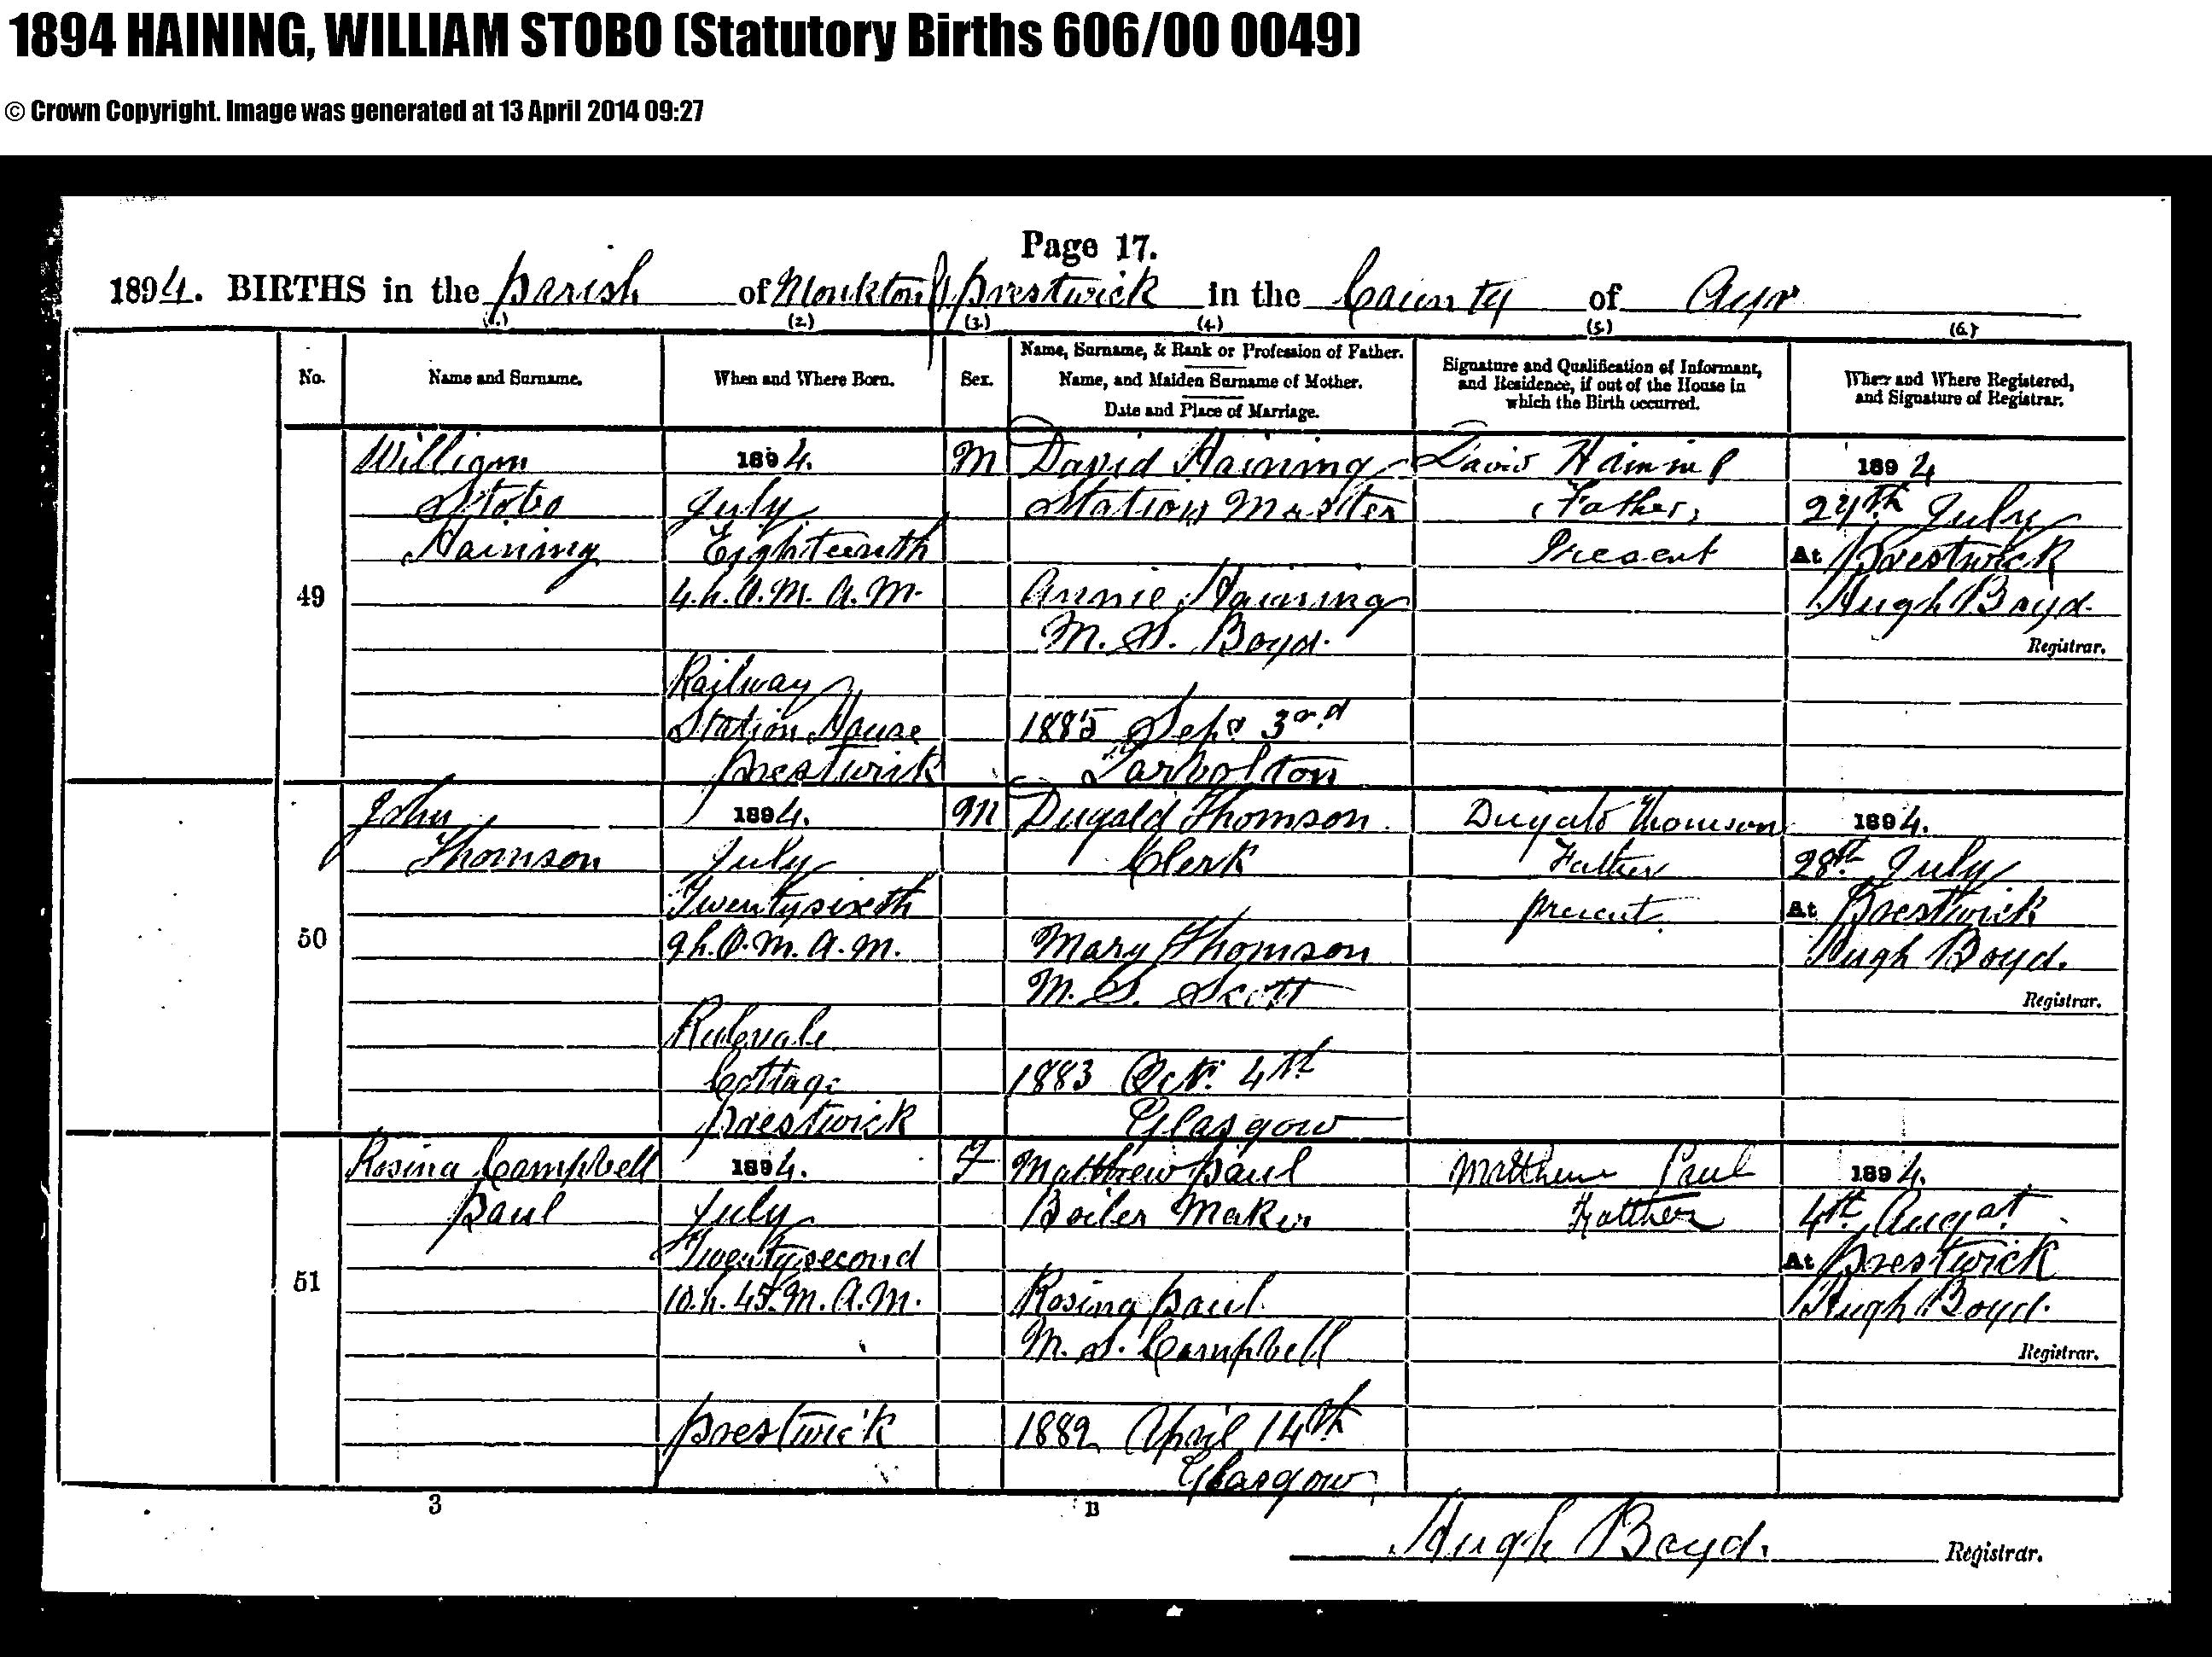 1894 HAINING, WILLIAM STOBO (Statutory Births 606/00 0049)
© Crown Copyright. Image was generated at 13 April 2014 09:27
Page 17.
1894. BIRTHS in the Parish of Monkton & Prestwick in the County of Ayr
(1.) (2.) (3.) (4.) (5.) (6.)
No.
Name and Surname.
When and Where Born.
Sex.
Name, Surname, & Rank or Profession of Father.
Name, and Maiden Surname of Mother.
Date and Place of Marriage.
Signature and Qualification of Informant,
and Residence, if out of the House in
which the Birth occurred.
When and Where Registered,
and Signature of Registrar.
49
William
Stobo
Haining
1894.
July
Eighteenth
4.h. 0.M. A.M.
Railway
Station House
Prestwick
M
David Haining
Station Master
Annie Haining
M.S. Boyd.
1885 Sept 3rd
Tarbolton
David Haining
Father
Present
1894
24th July
At Prestwick
Hugh Boyd.
Registrar.
50
John
Thomson
1894.
July
Twentysixth
9h. 0.M. A.M.
Cottage
Prestwick
M
Dugald Thomson
Clerk
Mary Thomson
M.S. Scott
1883 Oct. 4th
Glasgow
Dugald Thomson
Father
present.
1894.
28th July
At Prestwick
Hugh Boyd.
Registrar.
51
Rosina Campbell
Paul
1894.
July
Twentysecond
10.h. 45.M. A.M.
Prestwick
F
Matthew Paul
Boiler Maker
Rosina Paul
M.S. Campbell
1882 April 14th
Glasgow
Matthew Paul
Father
1894.
4th August
At Prestwick
Hugh Boyd.
Registrar.
3 B
Hugh Boyd. Registrar.